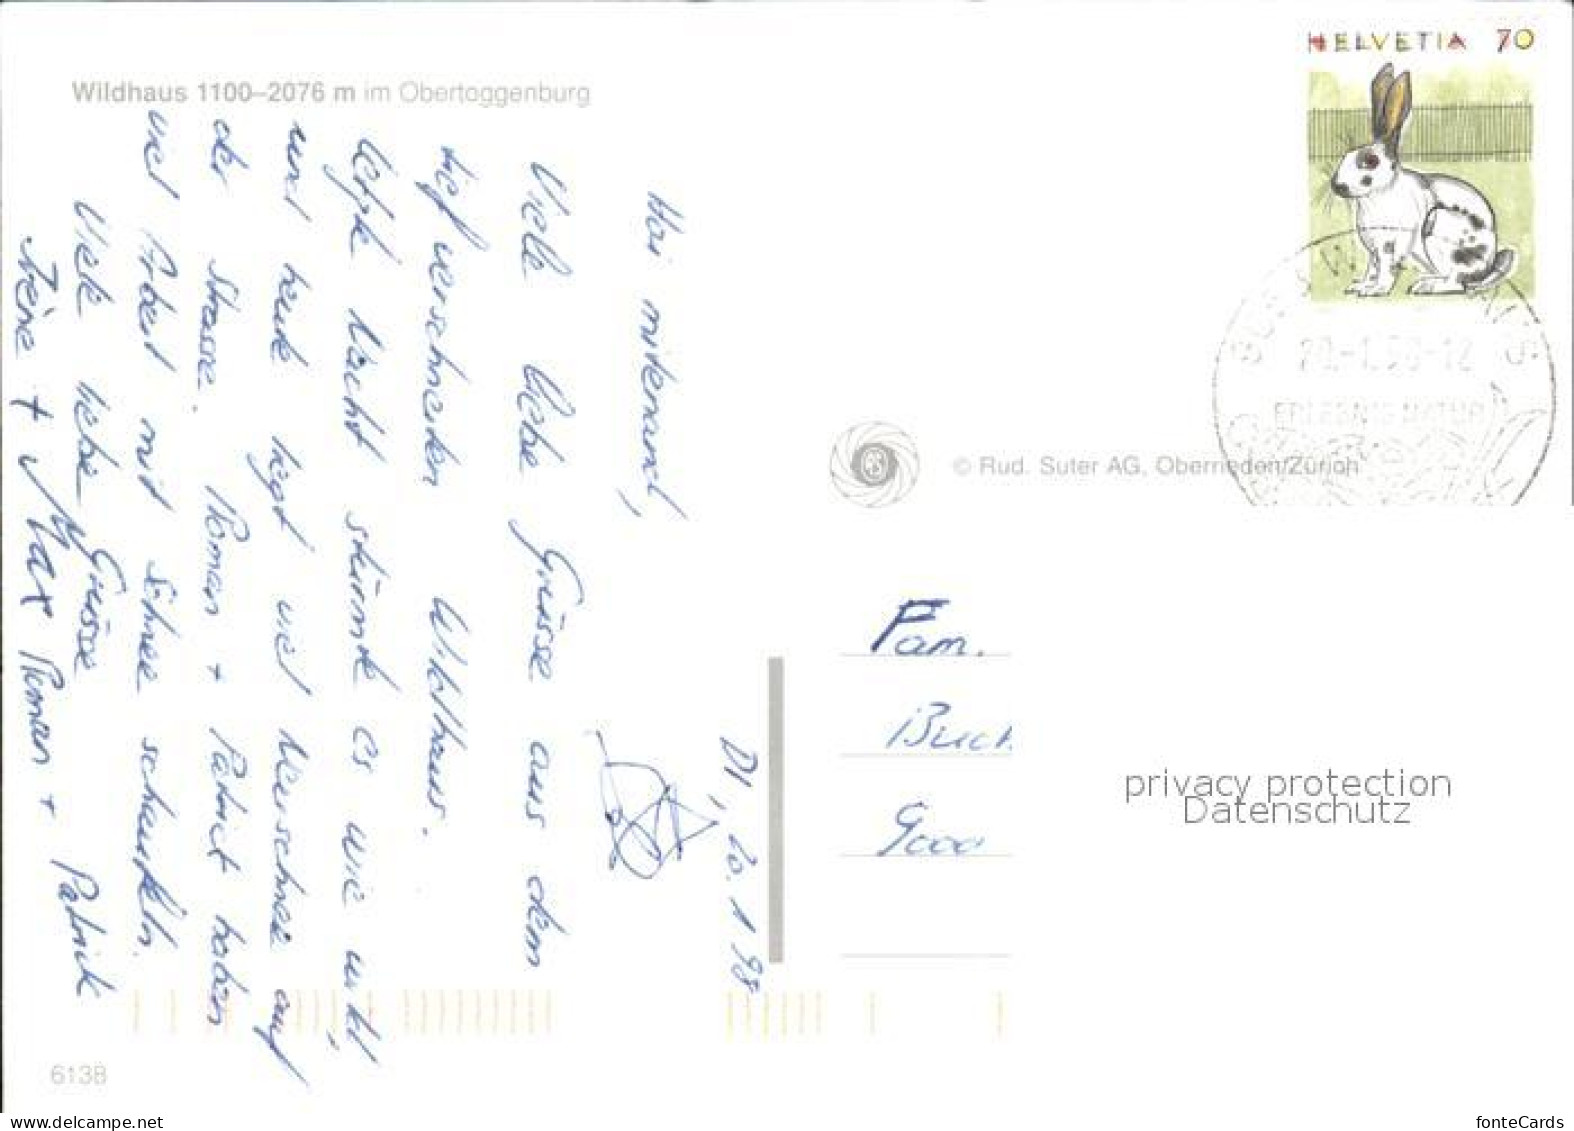 HELVETIA 70
Wildhaus 1100–2076 m im Obertoggenburg
DI, 20. 1 98
Hoi mitenand,
Viele liebe Grüsse aus dem
tief verschneiten Wildhaus.
Letzte Nacht stürmte es wie wild,
und heute liegt viel Neuschnee auf
der Strasse. Roman + Patrick haben
viel Arbeit mit Schnee schaufeln.
Viele liebe Grüsse
Irène + Max Roman + Patrick
20.-1.98-12
ERLEBNIS NATUR
© Rud. Suter AG, Oberrieden/Zürich
Fam.
Buch
9000
privacy protection
Datenschutz
6138
www.delcampe.net
fonteCards